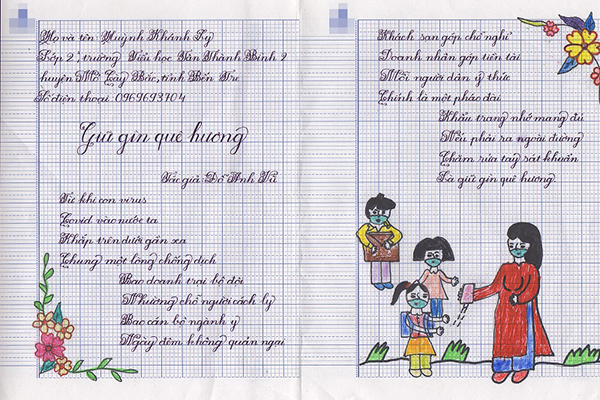 Họ và tên: Huỳnh Khánh Ly
Lớp 2², trường Tiểu học Tân Thành Bình 2
huyện Mỏ Cày Bắc, tỉnh Bến Tre
Số điện thoại: 0969693704
Giữ gìn quê hương
Tác giả: Đỗ Anh Vũ
Từ khi con virus
Covid vào nước ta
Khắp trên dưới gần xa
Chung một lòng chống dịch
Bao doanh trại bộ đội
Nhường chỗ người cách ly
Bao cán bộ ngành y
Ngày đêm không quản ngại
Khách sạn góp chỗ nghỉ
Doanh nhân góp tiền tài
Mỗi người dân ý thức
Chính là một pháo đài
Khẩu trang nhớ mang đủ
Nếu phải ra ngoài đường
Chăm rửa tay sát khuẩn
Là giữ gìn quê hương.